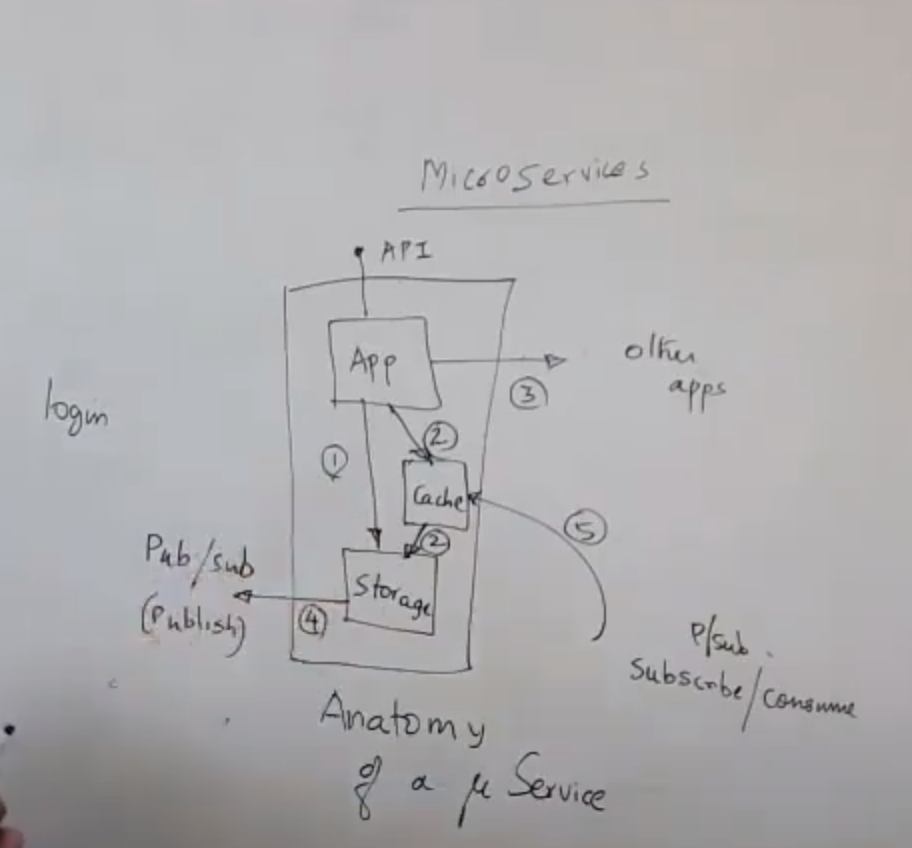 Microservices
API
App
other
apps
③
login
②
①
Cache
⑤
②
Pub/sub
(Publish)
Storage
④
P/sub
Subscribe/consume
Anatomy
of a μ Service